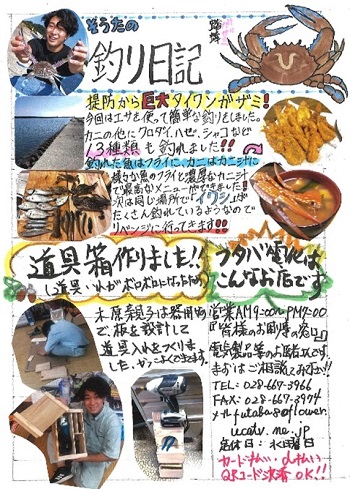 そうたの
釣り日記
堤防から巨大タイワンガザミ!
今回はエサを使って簡単な釣りをしました。
カニの他にクロダイ、ハゼ、シャコなど
3種類も釣れました!!
釣れた魚はフライに、カニはカニ汁に
様々な魚のフライと濃厚なカニ汁
で最高なメニューができました!
次は同じ場所で「イワシ」が
たくさん釣れているようなので
リベンジに行ってきます!!
道具箱作りました!!
フタバ電化は
こんなお店です
木原親子は器用
ご板を設計して
道具入れをつくりま
した。かっこよくできました。
営業AM9:00〜PM7:00
『皆様のお困事の窓口』
電気製品等のお困り事です。
まずはご相談してみて下さい!!
TEL: 028-667-3966
FAX: 028-667-3974
メール futaba8@flower.
ucatv.ne.jp
定休日:水曜日
カード払い、d払い
QRコード決済 OK!!